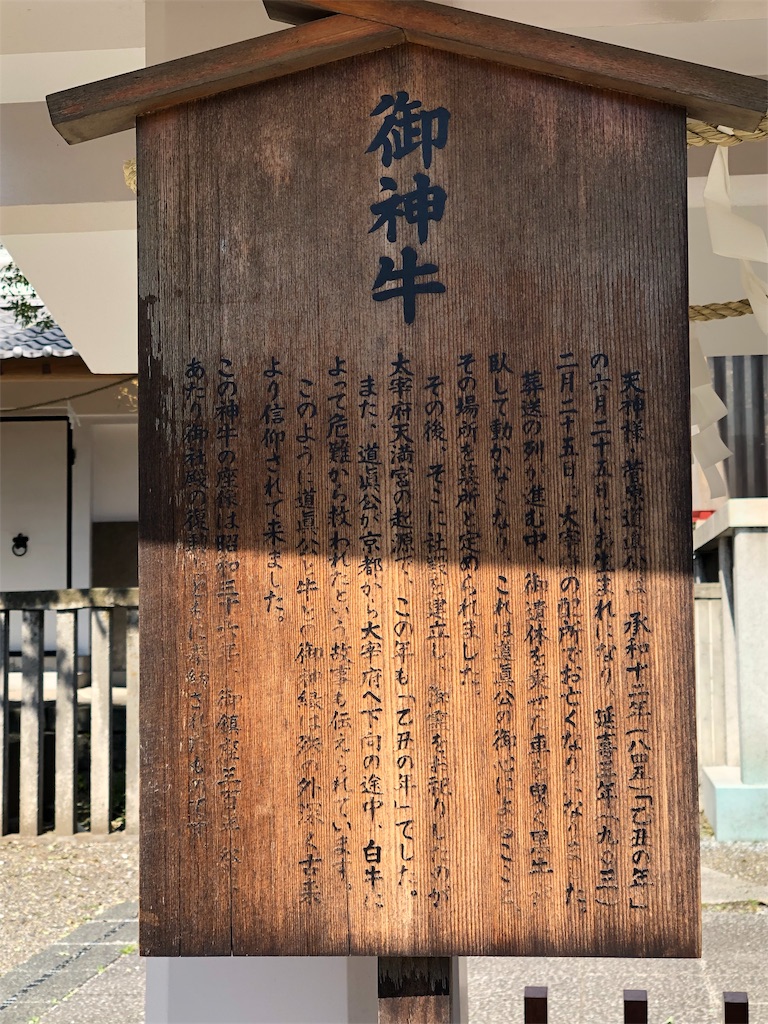 御神牛
天神様・菅原道眞公は、承和十二年(八四五)「乙丑の年」
の六月二十五日にお生まれになり、延喜三年(九〇三)
二月二十五日、大宰府の配所でお亡くなりになりました。
葬送の列が進む中、御遺体を乗せた車を曳く黒牛が
臥して動かなくなり、これは道眞公の御心によること
その場所を墓所と定められました。
その後、そこに社殿を建立し、御霊をお祀りしたのが
太宰府天満宮の起源で、この年も「乙丑の年」でした。
また、道眞公が京都から大宰府へ下向の途中、白牛に
よって危難から救われたという故事も伝えられています。
このように道眞公と牛との御神縁は殊の外深く古来
より信仰されて来ました。
この神牛の座像は昭和三十七年、御鎮座五百年
あたり御社殿の復興とともに奉納されたもので